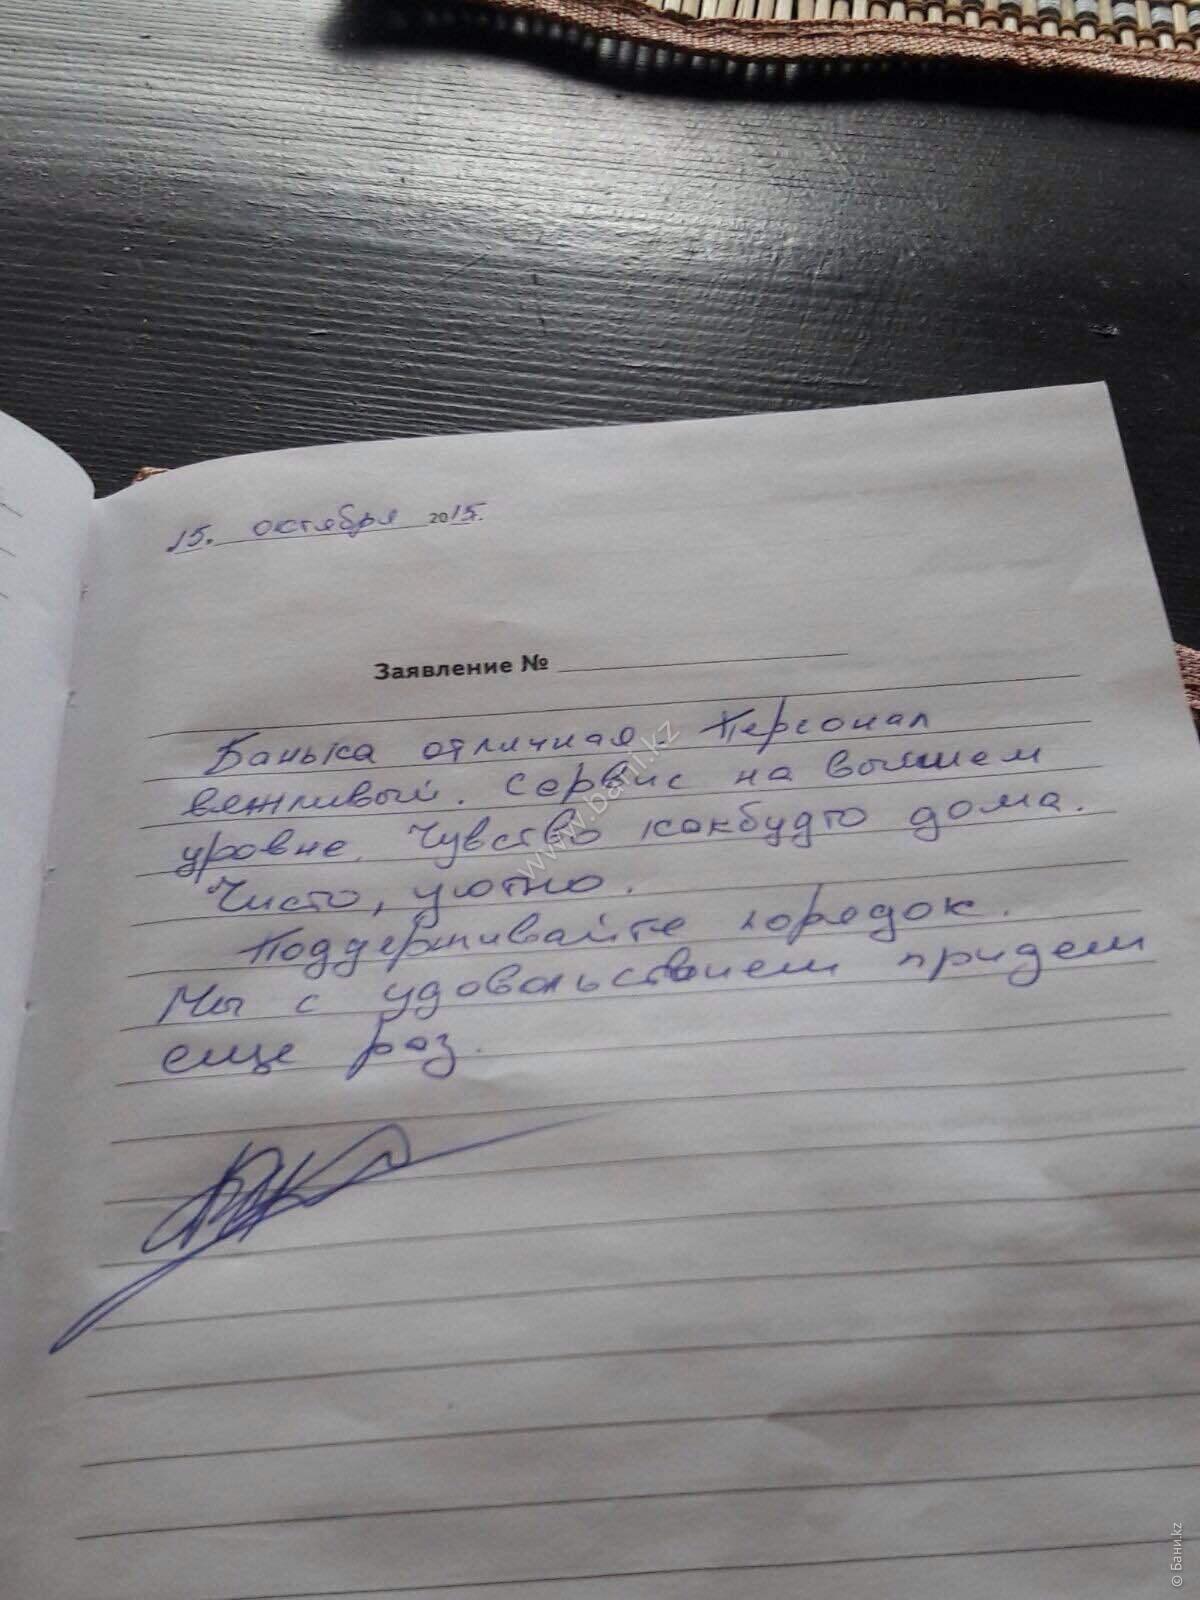 15. октября 2015.
Заявление №
Банька отличная. Персонал
вежливый. Сервис на высшем
уровне. Чувство какбудто дома.
Чисто, уютно.
Поддерживайте порядок.
Мы с удовольствием придем
еще раз.
www.bani.kz
© Бани.kz